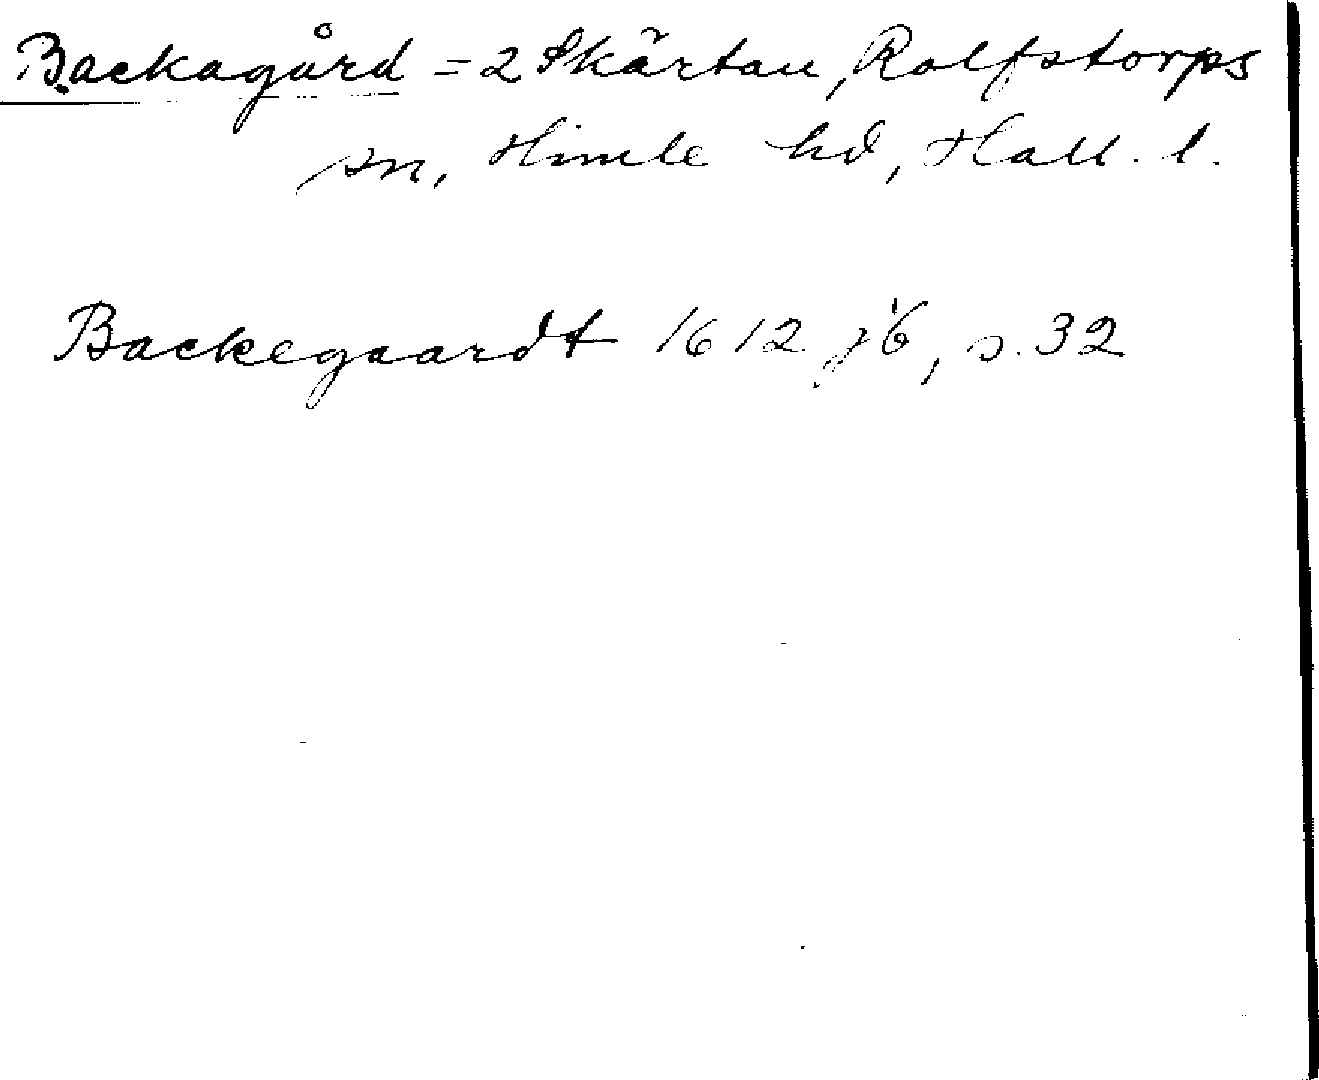 Backagård = 2 Skärtan, Rolfstorps
sn, Himle hd, Hall. l.
Backegaardt 1612 jb, s. 32